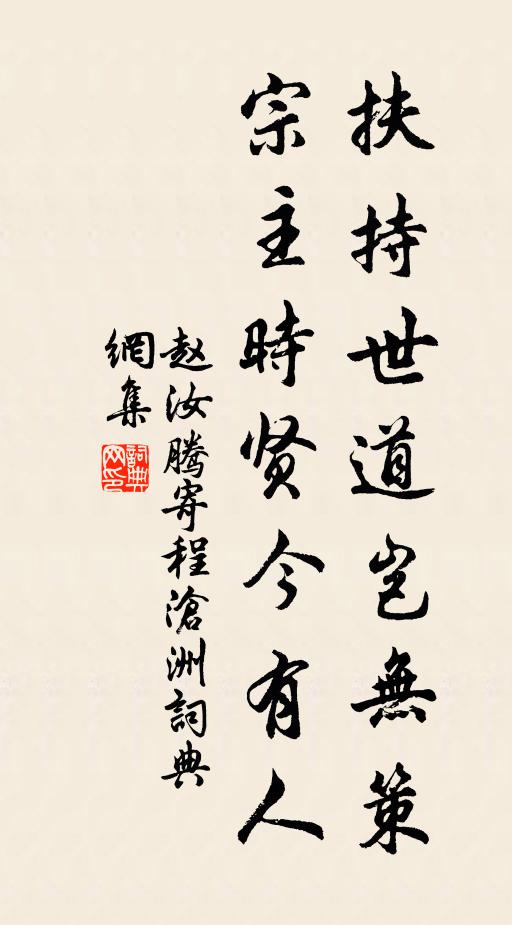 扶持世道岂無策
宗主時贤今有人
赵汝腾寄程滄洲詞典
網集
詞典
网印